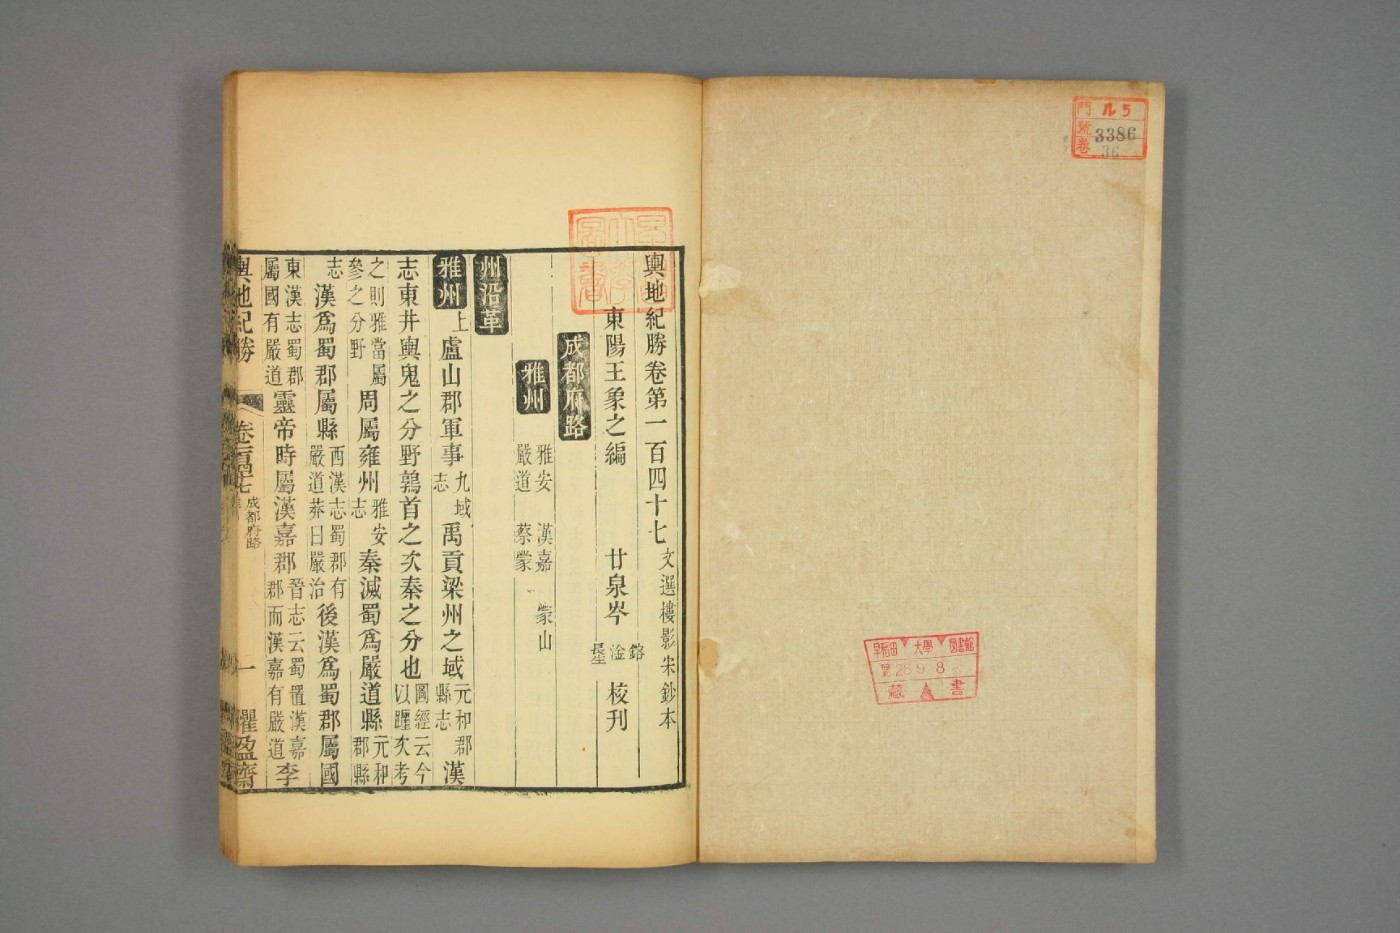 門 ル5
號 3386
卷 36
早稻田大學圖書館
28.9.8
藏書
輿地紀勝卷第一百四十七 文選樓影宋鈔本
東陽王象之編 甘泉岑 鎔 淦 長生 校刊
成都府路
雅州 雅安 漢嘉 蒙山 嚴道 蔡蒙
州沿革
雅州 上 盧山郡軍事 九域志 禹貢梁州之域 元和郡縣志 漢
志東井輿鬼之分野鶉首之次秦之分也 圖經云今以躔次考
之則雅當屬參之分野 周屬雍州 雅安志 秦滅蜀爲嚴道縣 元和郡縣
志 漢爲蜀郡屬縣 西漢志蜀郡有嚴道莽曰嚴治 後漢爲蜀郡屬國
東漢志蜀郡屬國有嚴道 靈帝時屬漢嘉郡 晉志云蜀置漢嘉郡而漢嘉有嚴道 李
輿地紀勝 卷一百四十七 成都府路 一 懼盈齋